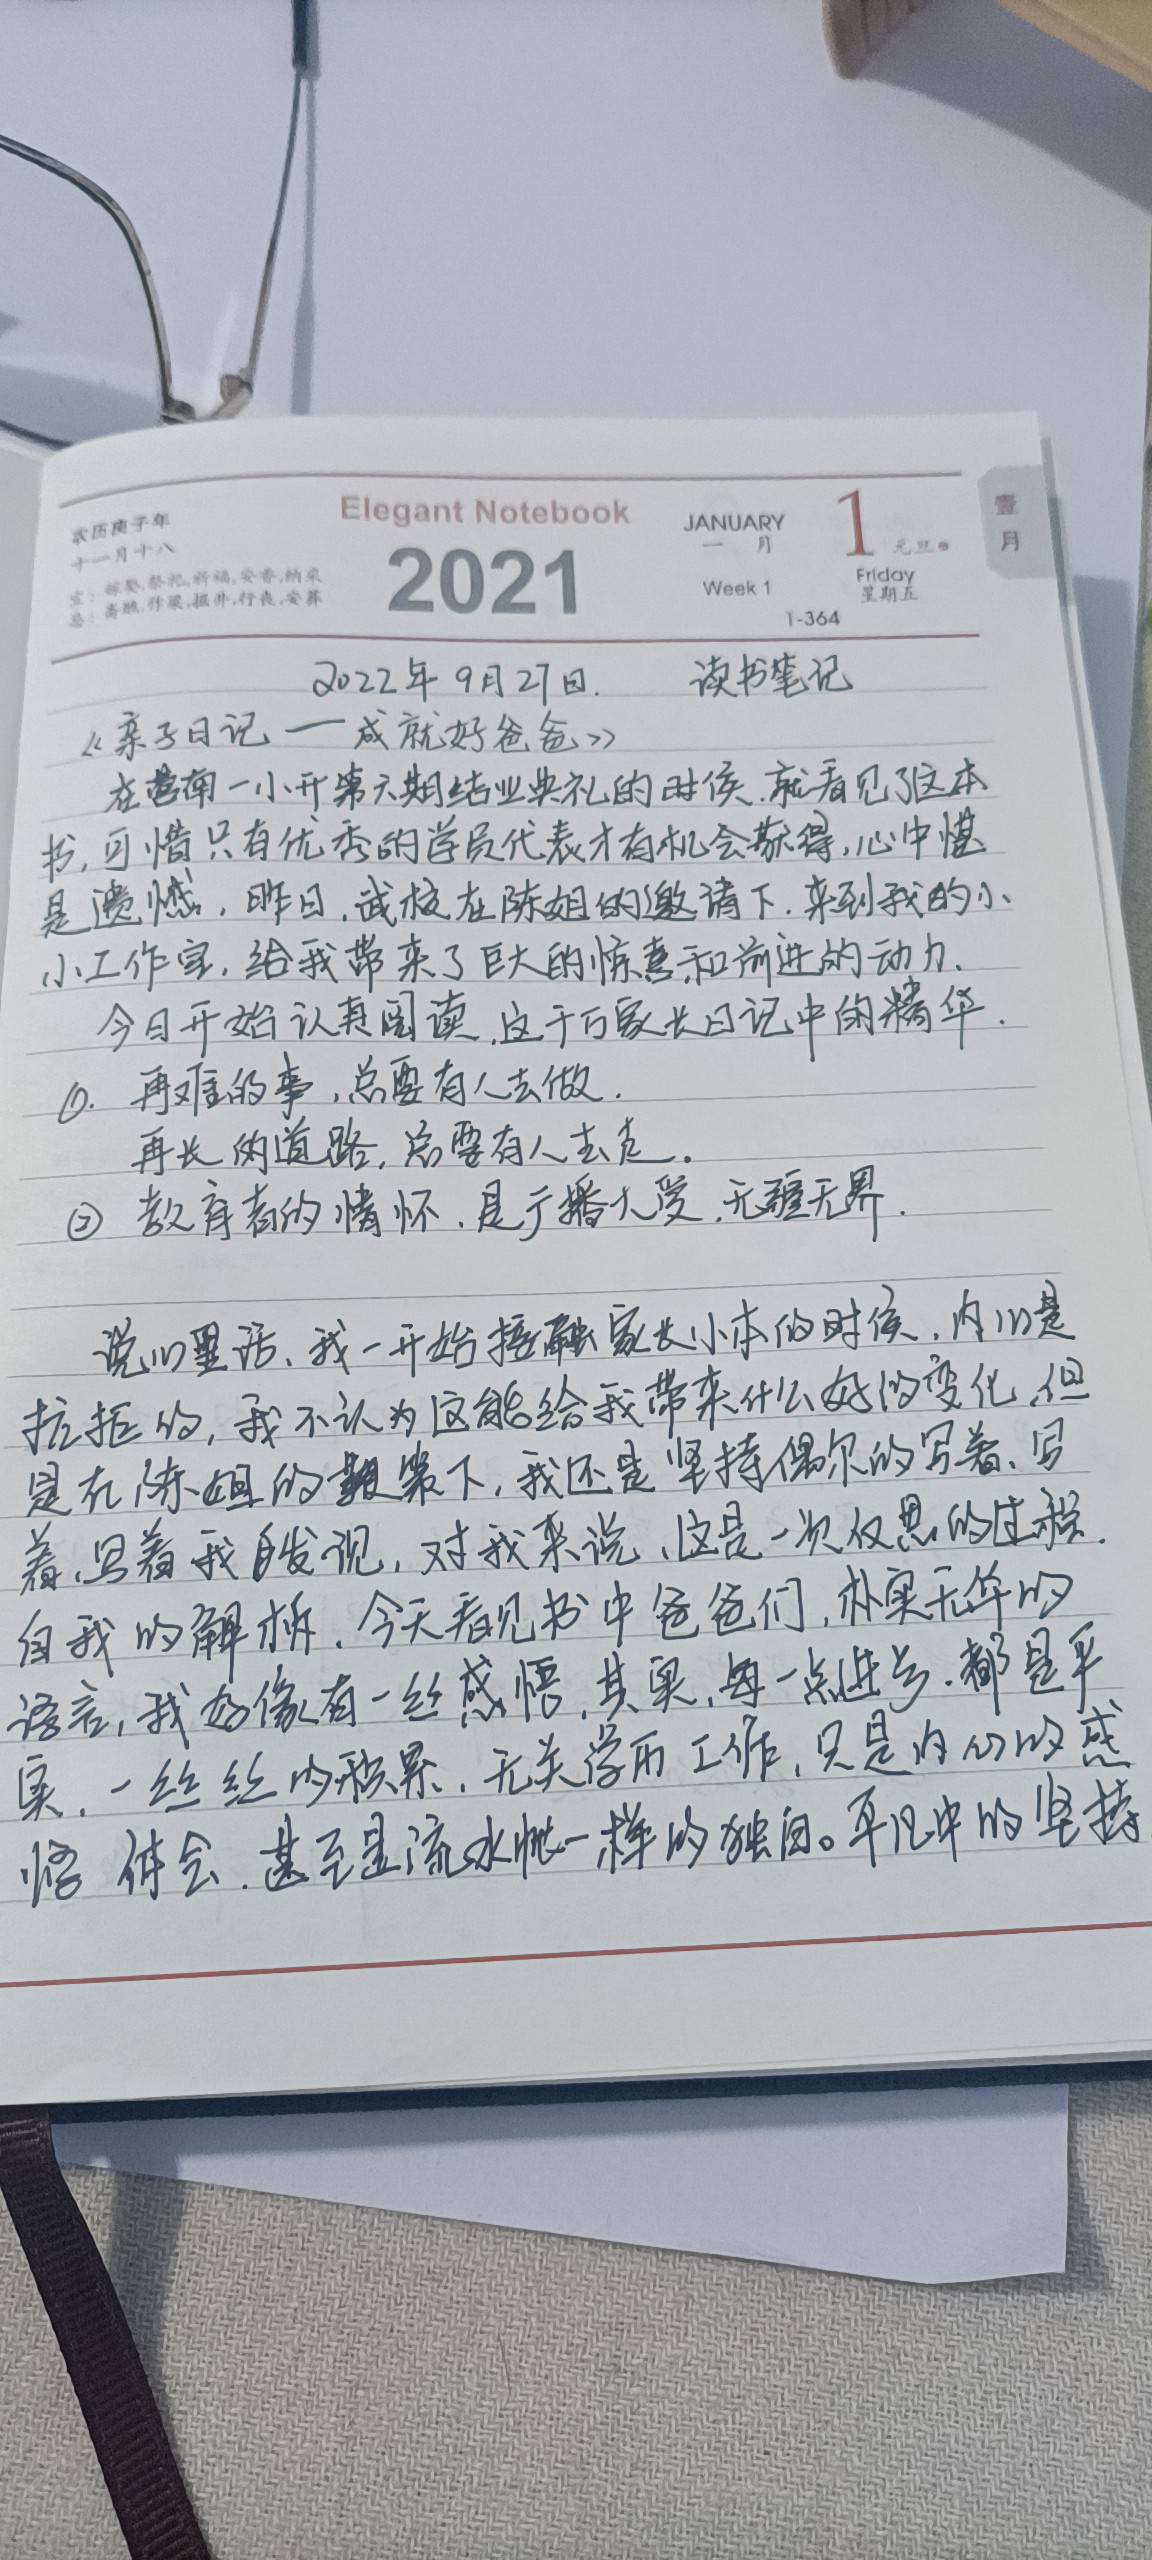 农历庚子年
十一月十八
宜：嫁娶,祭祀,祈福,安香,纳采
忌：斋醮,作梁,掘井,行丧,安葬
Elegant Notebook
2021
JANUARY
一 月
Week 1
1
元旦
Friday
星期五
1-364
壹
月
2022年9月27日. 读书笔记
《亲子日记——成就好爸爸》
在营南一小开第六期结业典礼的时候,就看见了这本
书,可惜只有优秀的学员代表才有机会获得,心中堪
是遗憾,昨日,武校在陈姐的邀请下,来到我的小
小工作室,给我带来了巨大的惊喜和前进的动力.
今日开始认真阅读,这千万家长日记中的精华.
①. 再难的事,总要有人去做.
再长的道路,总要有人去走。
② 教育者的情怀,是广播大爱,无疆无界.
说心里话,我一开始接触家长小本的时候,内心是
抗拒的,我不认为这能给我带来什么好的变化,但
是在陈姐的鞭策下,我还是坚持偶尔的写着、写
着,写着我自发现,对我来说,这是一次反思的过程.
自我的解析.今天看见书中爸爸们,朴实无华的
语言,我好像有一丝感悟,其实,每一点进步,都是平
实,一丝丝的积累,无关学历工作,只是内心的感
悟 体会,甚至是流水帐一样的独白。平凡中的坚持